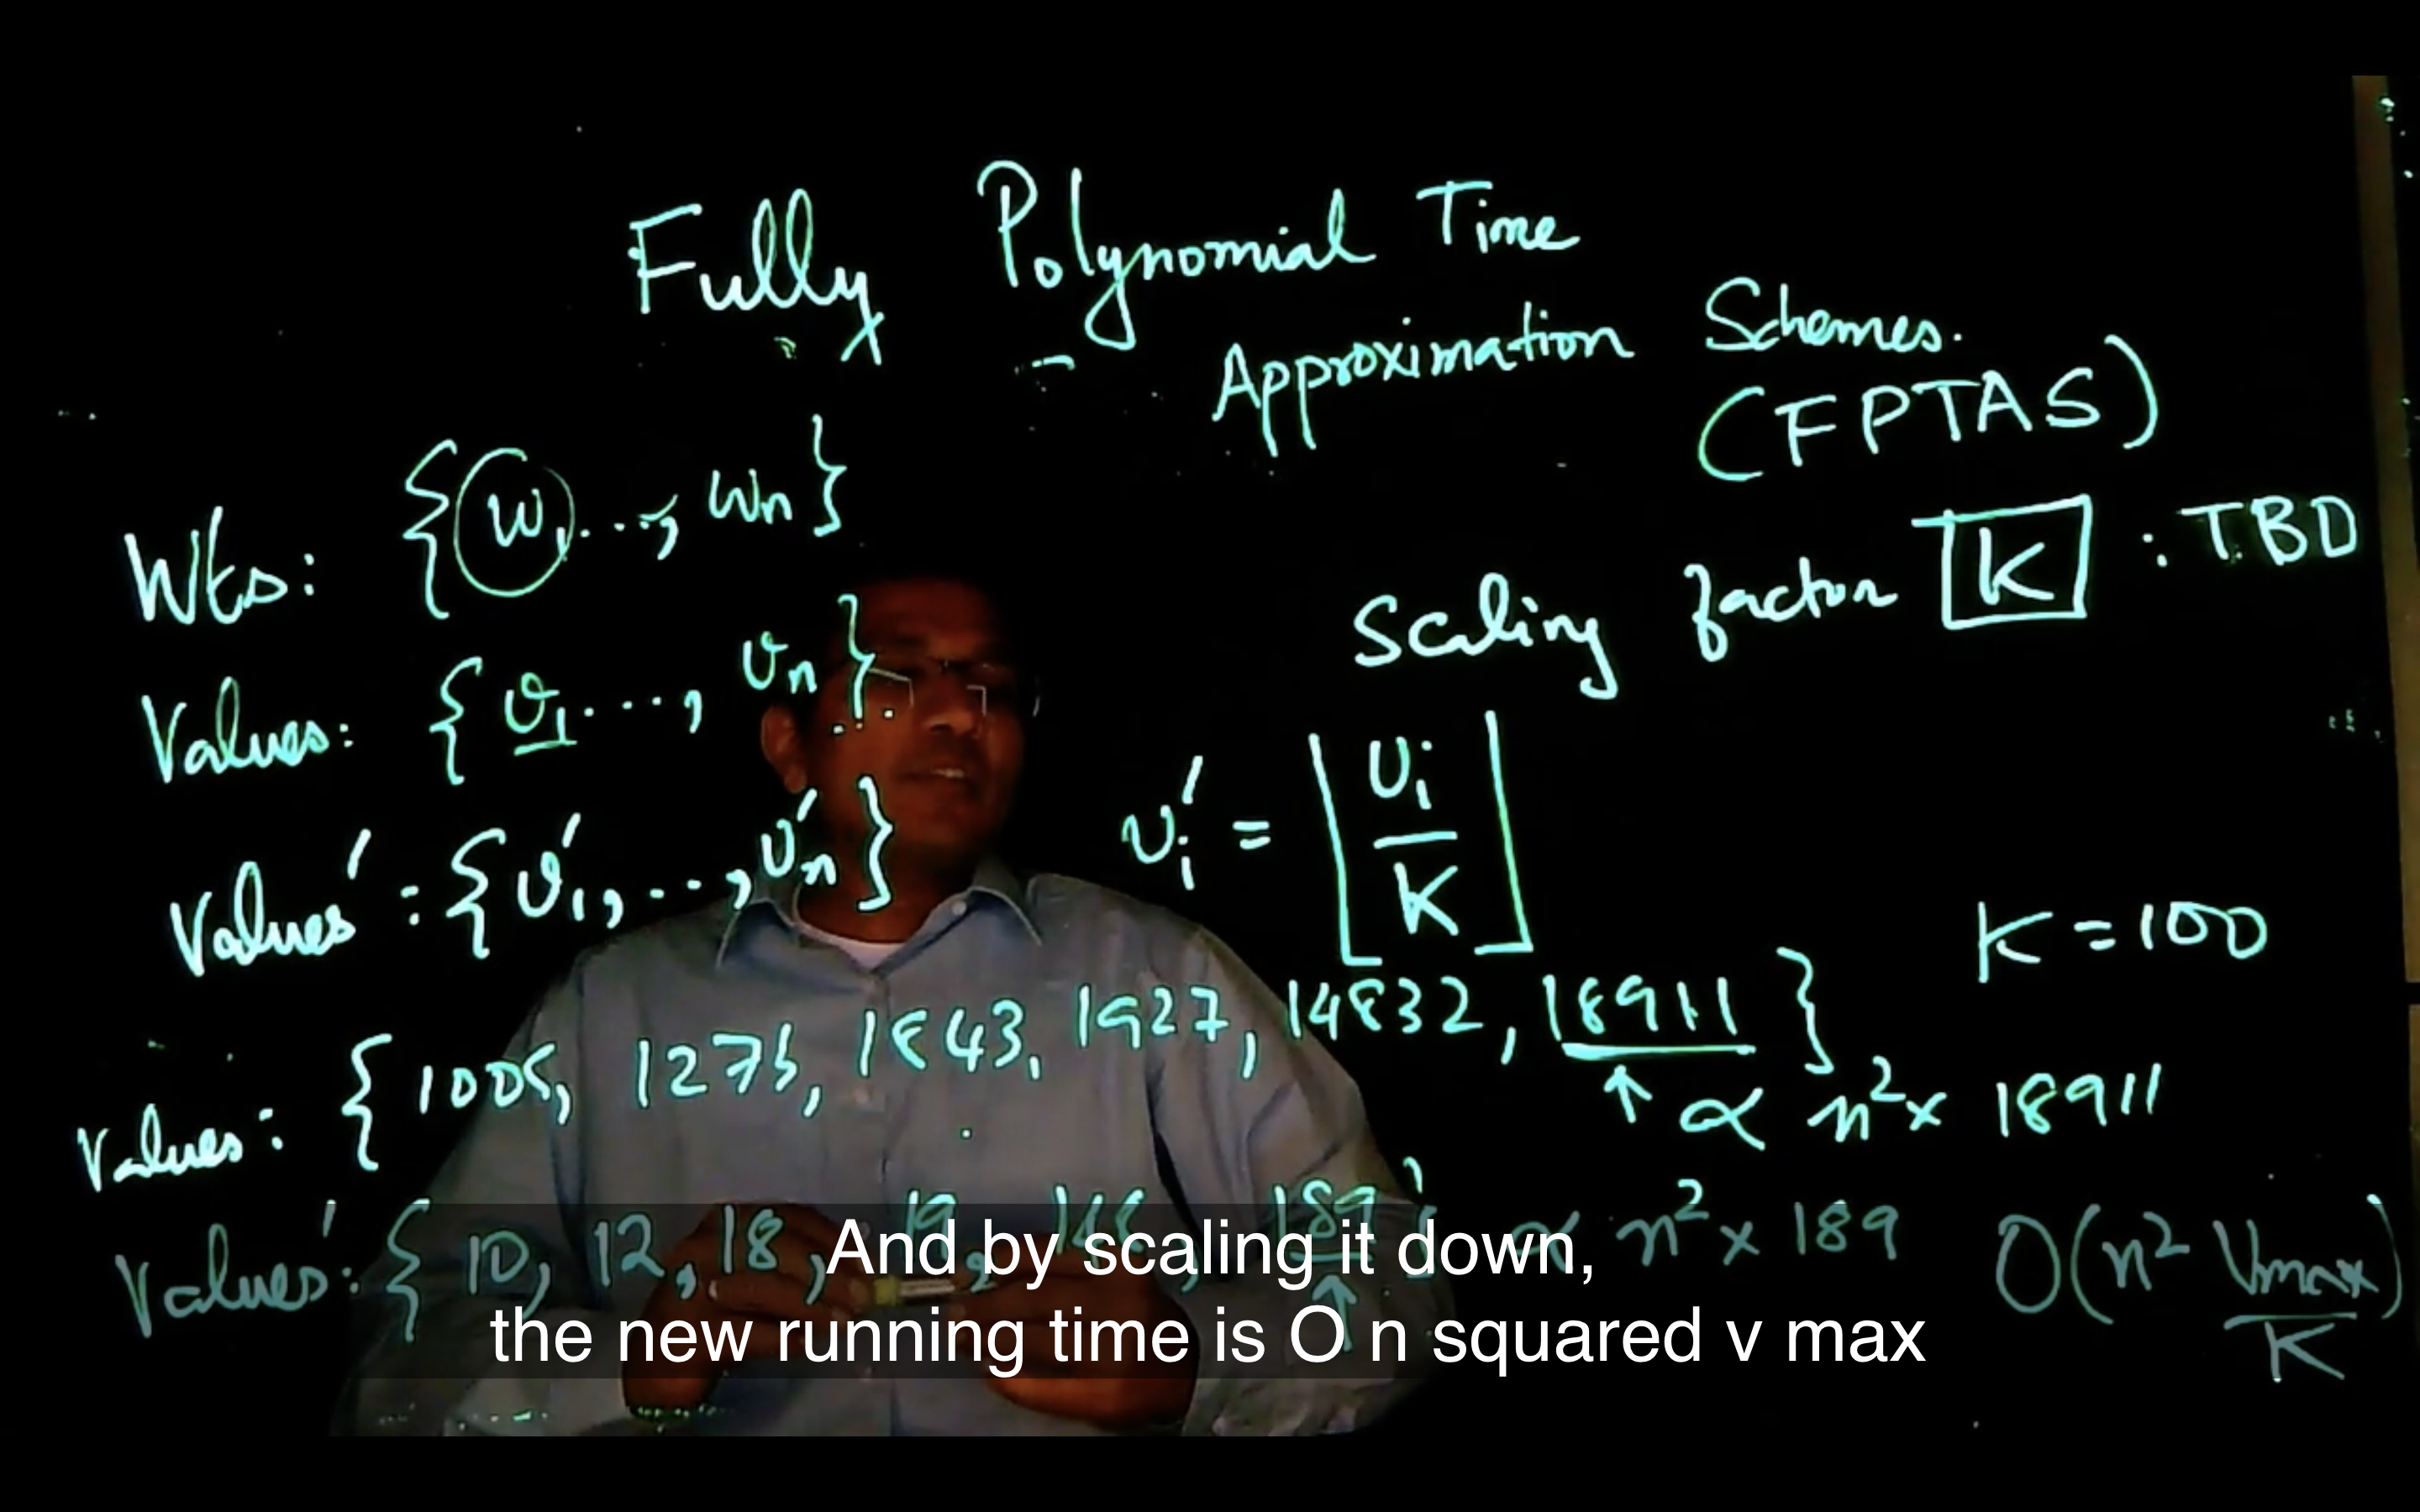 Fully Polynomial Time
Approximation Schemes.
(FPTAS)
Wts: {w₁..., wₙ}
Scaling factor K : TBD
Values: {v₁..., vₙ}
Values′ : {v′₁, ..., v′ₙ}
vᵢ′ = ⌊vᵢ/K⌋
K = 100
Values: {1005, 1275, 1843, 1927, 14832, 18911}
↑ ∝ n² x 18911
Values′: {10, 12, 18, 19, 148, 189} ∝ n² x 189
↑
O(n² Vmax/K)
And by scaling it down,
the new running time is O n squared v max